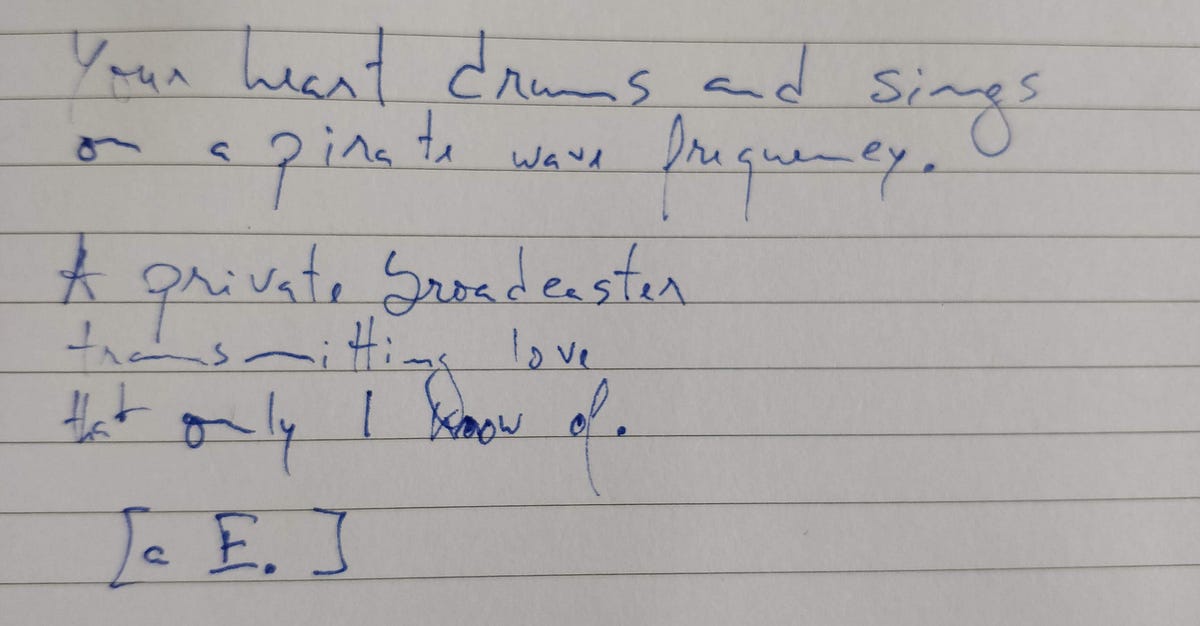 Your heart drums and sings
on a pirate wave frequency.
A private broadcaster
transmitting love
that only I know of.
[a E.]